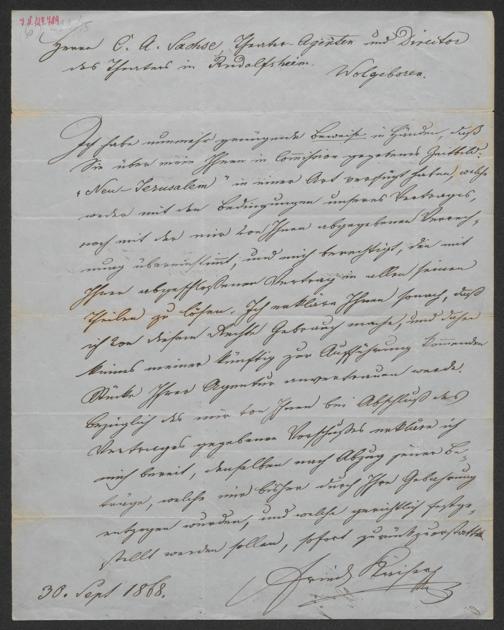 Herrn C. A. Sachse, Theater-Agenten und Director
des Theaters in Rudolfsheim.
Wolgeboren.
Ich habe nunmehr genügende Beweise in Händen, daß
Sie über mein Ihnen in Commission gegebenes Zeitbild:
„Neu-Jerusalem" in einer Art verfügt haben, welche
weder mit den Bedingungen unseres Vertrages,
noch mit der mir von Ihnen abgegebenen Verrech-
nung übereinstimmt, und mich berechtigt, den mit
Ihnen abgeschlossenen Vertrag in allen seinen
Theilen zu lösen. Ich erkläre Ihnen sonach, daß
ich von diesem Rechte Gebrauch mache, und daher
keines meiner künftig zur Aufführung kommenden
Stücke Ihrer Agentur anvertrauen werde.
Bezüglich des mir von Ihnen bei Abschluß des
Vertrages gegebenen Vorschußes erkläre ich
mich bereit, denselben nach Abzug jener Be-
träge, welche mir bisher durch Ihre Gebahrung
entzogen wurden, und welche gerichtlich festge-
stellt werden sollen, sofort zurückzuerstatten
Fried. Kaiser
30. Sept 1868.